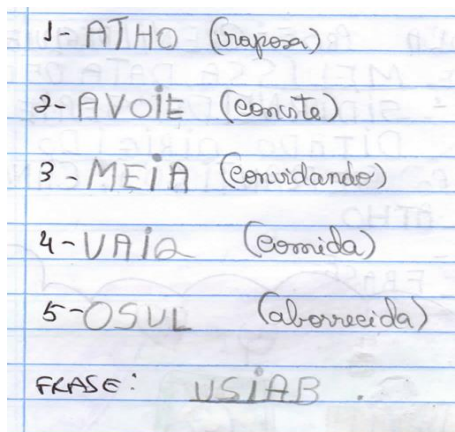 1- ATHO (raposa)
2- AVOIE (convite)
3 - MEIA (convidando)
4 - VAIA (comida)
5 - OSUL (aborrecida)
FRASE: USIAB .